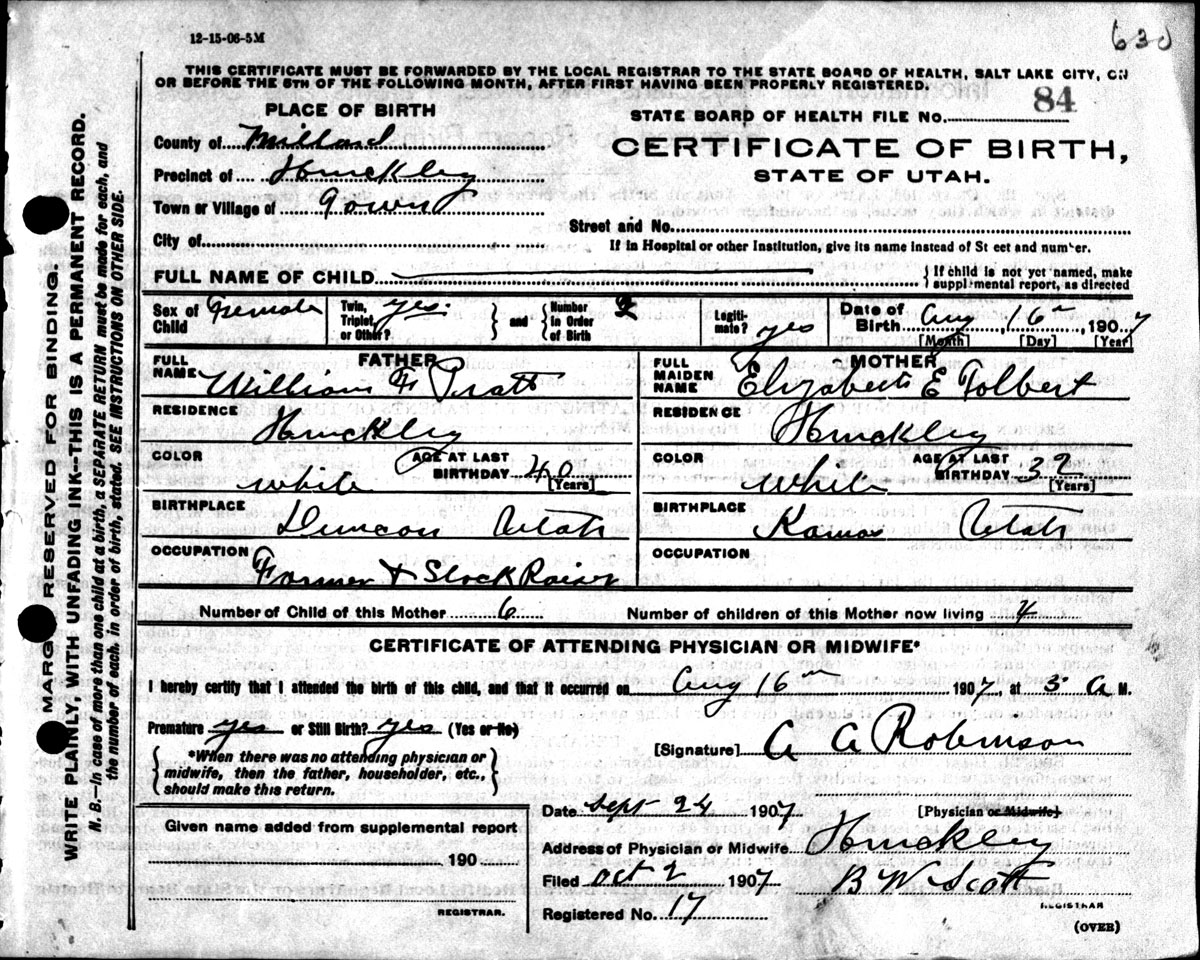 12-15-06-5M
630
THIS CERTIFICATE MUST BE FORWARDED BY THE LOCAL REGISTRAR TO THE STATE BOARD OF HEALTH, SALT LAKE CITY, ON
OR BEFORE THE 5TH OF THE FOLLOWING MONTH, AFTER FIRST HAVING BEEN PROPERLY REGISTERED.
PLACE OF BIRTH
County of Millard
Precinct of Hinckley
Town or Village of Town
City of
STATE BOARD OF HEALTH FILE No. 84
CERTIFICATE OF BIRTH,
STATE OF UTAH.
Street and No.
If in Hospital or other Institution, give its name instead of St eet and number.
FULL NAME OF CHILD
{If child is not yet named, make supplemental report, as directed
Sex of Child Female
Twin, Triplet, or Other? yes. } and { Number in Order of Birth 2
Legiti-mate? yes
Date of Birth Aug 16th, 1907
[Month] [Day] [Year]
FATHER
FULL NAME William F Pratt
RESIDENCE Hinckley
COLOR White
AGE AT LAST BIRTHDAY 40 [Years]
BIRTHPLACE Duncan Utah
OCCUPATION Farmer & Stock Raiser
MOTHER
FULL MAIDEN NAME Elizabeth E Tolbert
RESIDENCE Hinckley
COLOR White
AGE AT LAST BIRTHDAY 32 [Years]
BIRTHPLACE Kamas Utah
OCCUPATION
Number of Child of this Mother 6 Number of children of this Mother now living 4
CERTIFICATE OF ATTENDING PHYSICIAN OR MIDWIFE*
I hereby certify that I attended the birth of this child, and that it occurred on Aug 16th 1907, at 3 A M.
Premature yes or Still Birth? yes (Yes or No)
{*When there was no attending physician or midwife, then the father, householder, etc., should make this return.}
[Signature] A A Robinson
[Physician or Midwife]
Date Sept 24 1907
Address of Physician or Midwife Hinckley
Filed Oct 2 1907 B W Scott
REGISTRAR
Registered No. 17
(OVER)
Given name added from supplemental report
190
REGISTRAR.
MARGIN RESERVED FOR BINDING.
WRITE PLAINLY, WITH UNFADING INK--THIS IS A PERMANENT RECORD.
N. B.--In case of more than one child at a birth, a SEPARATE RETURN must be made for each, and
the number of each, in order of birth, stated. SEE INSTRUCTIONS ON OTHER SIDE.